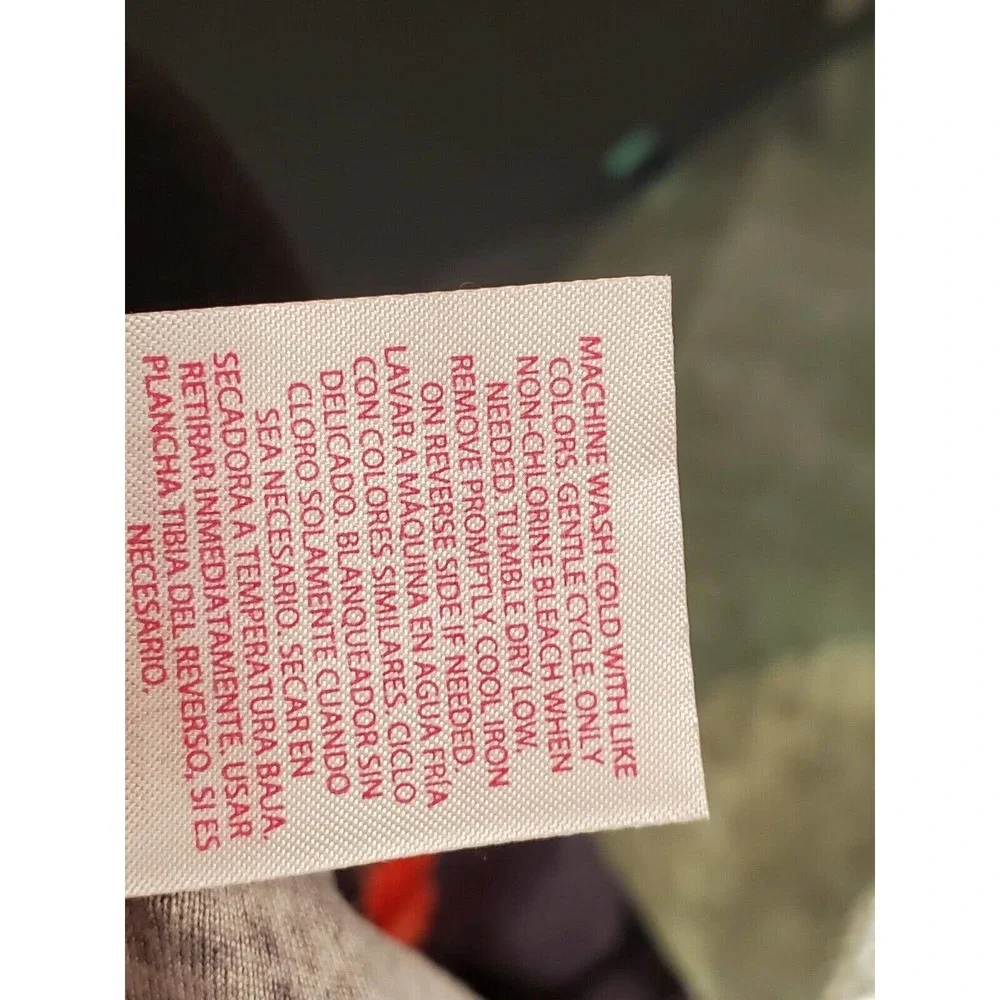 MACHINE WASH COLD WITH LIKE
COLORS. GENTLE CYCLE. ONLY
NON-CHLORINE BLEACH WHEN
NEEDED. TUMBLE DRY LOW.
REMOVE PROMPTLY. COOL IRON
ON REVERSE SIDE IF NEEDED.
LAVAR A MÁQUINA EN AGUA FRIA
CON COLORES SIMILARES. CICLO
DELICADO. BLANQUEADOR SIN
CLORO SOLAMENTE CUANDO
SEA NECESARIO. SECAR EN
SECADORA A TEMPERATURA BAJA.
RETIRAR INMEDIATAMENTE. USAR
PLANCHA TIBIA DEL REVERSO, SI ES
NECESARIO.